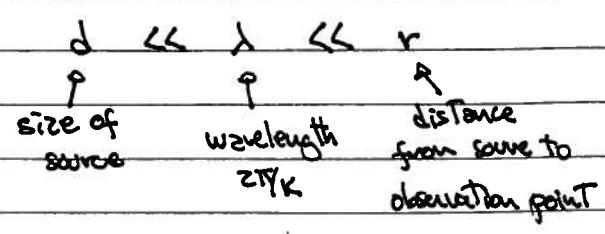 d << λ << r
size of
source
wavelength
2π/k
distance
from source to
observation point